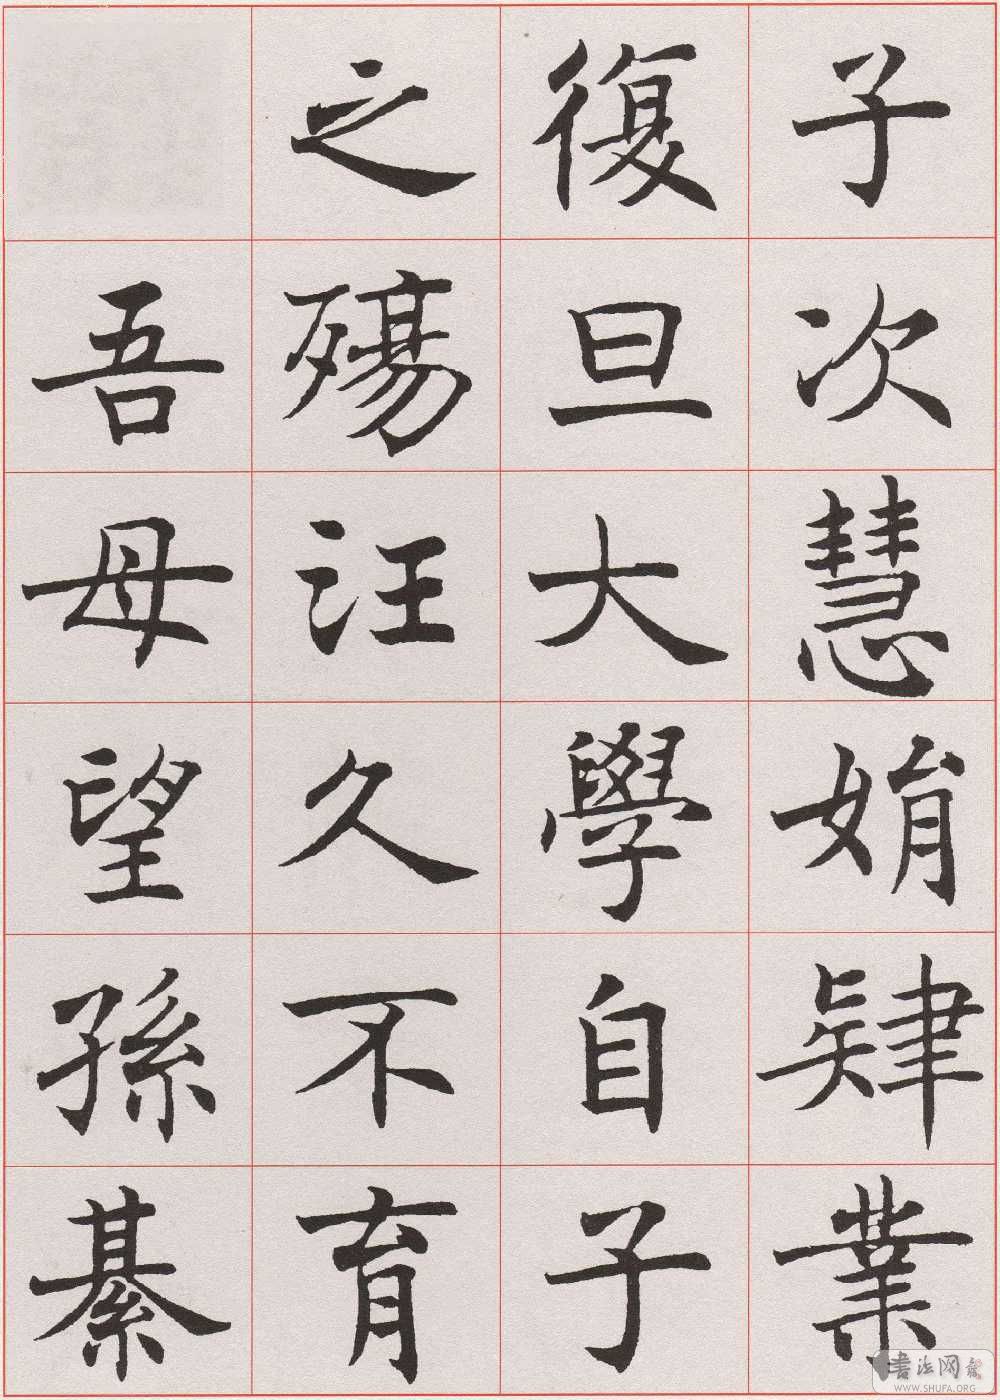 子次慧娟肄業
復旦大學自子
之殤汪久不育
吾母望孫綦
書法网
WWW.SHUFA.ORG